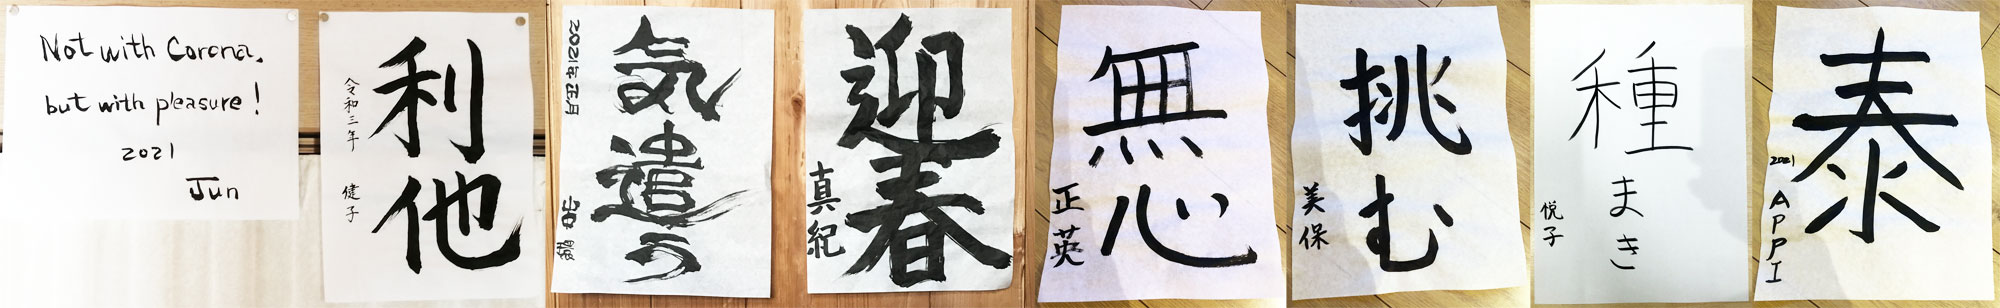 Not with Corona,
but with pleasure!
2021
Jun
利他
令和三年
健子
気遣う
2021年正月
迎春
真紀
無心
正英
挑む
美保
種まき
悦子
泰
2021
APPI